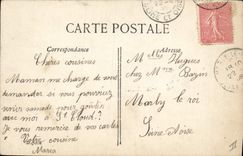 CARTE POSTALE
Correspondance
Adresse
Chères cousines
Maman me charge de vous
demander si vous pouviez
venir samedi pour goûter
avec moi à St Cloud ?
Je vous remercie de vos cartes
Votre cousine
M Hugues
chez Mme Bazin
Marly le roi
Seine Oise